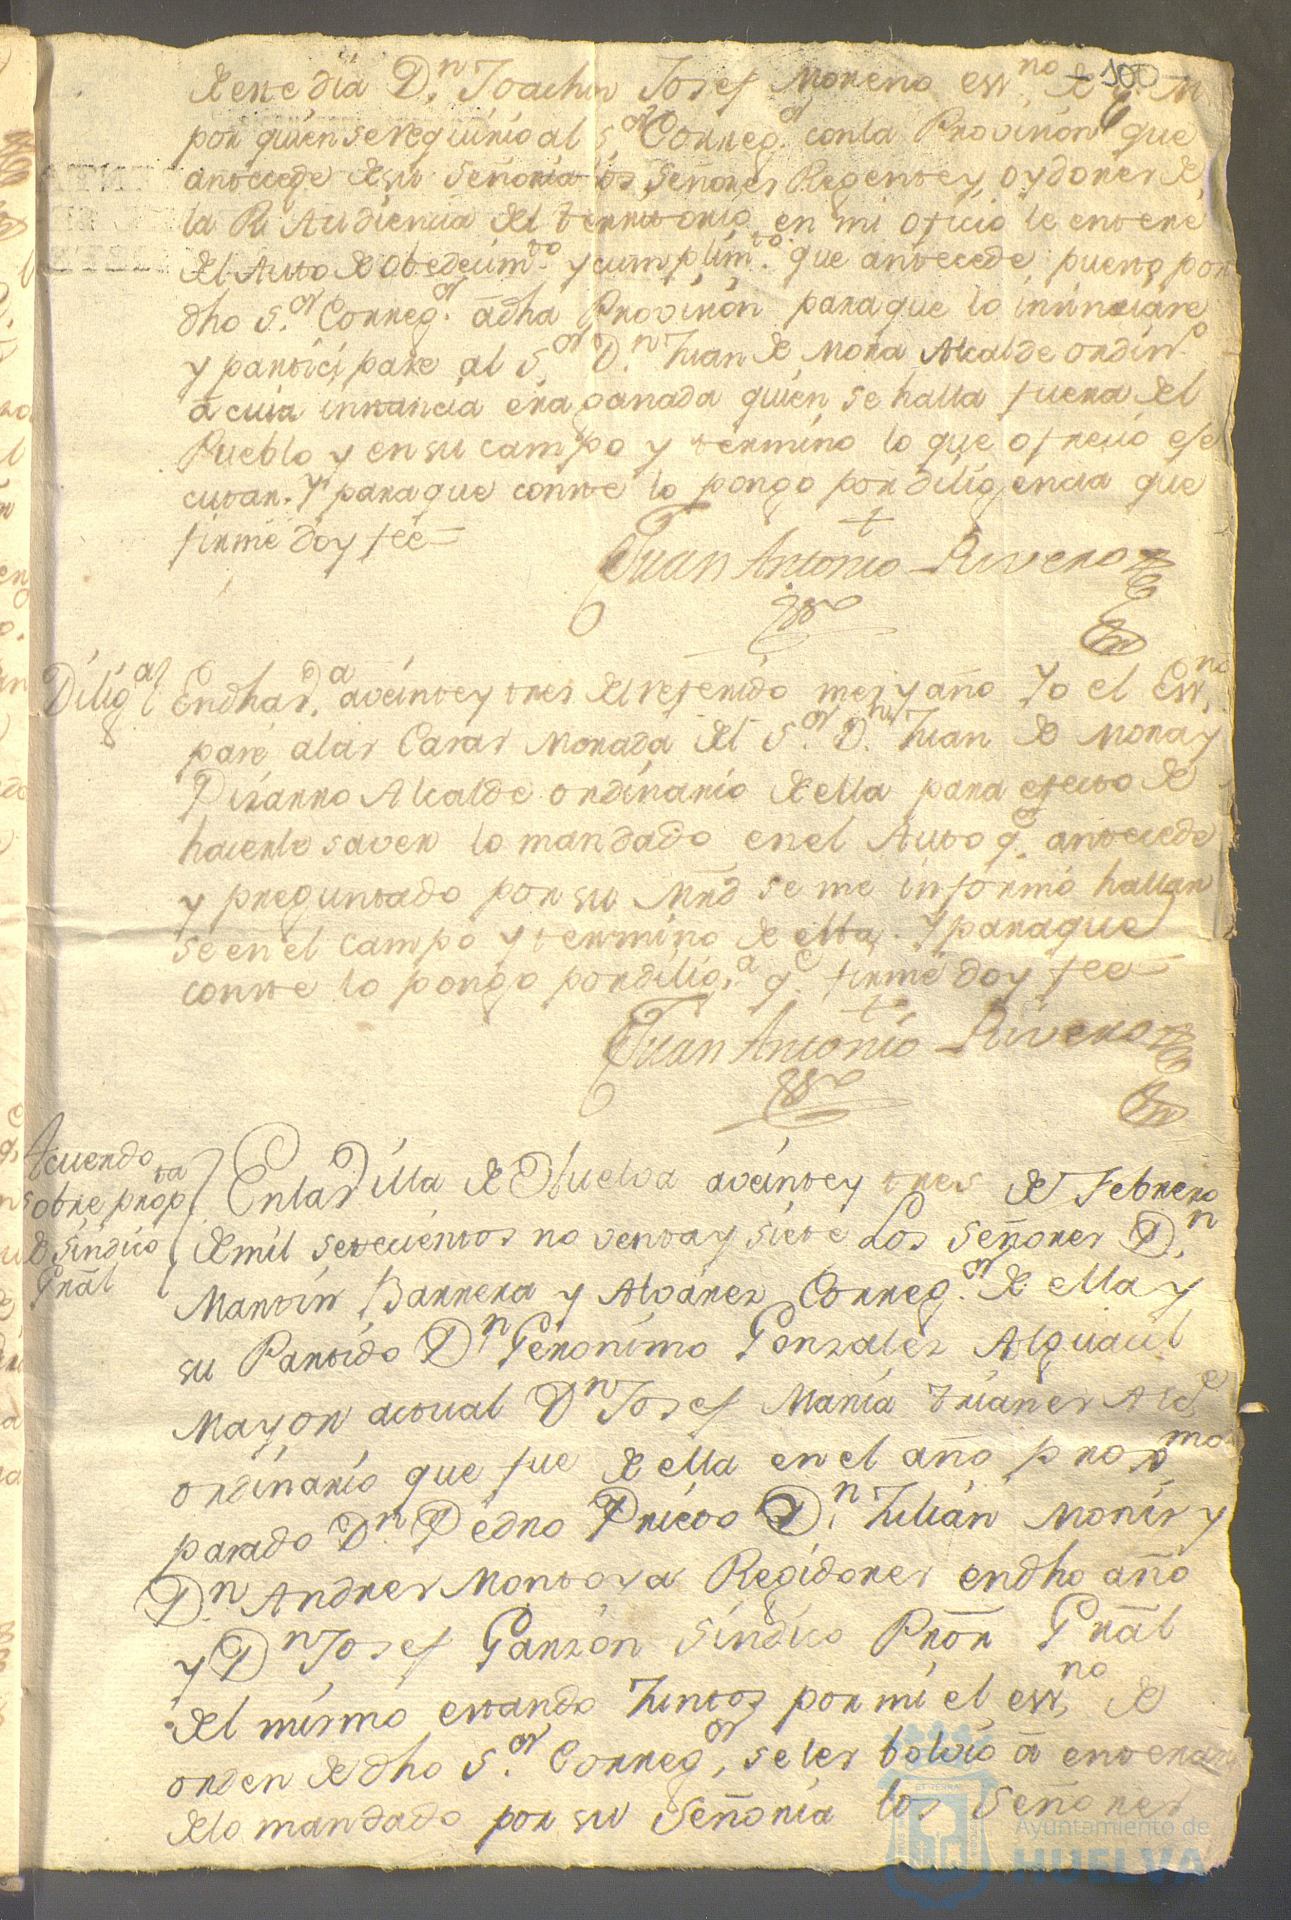 100
de este dia Dn. Joachin Josef Moreno essno. de S. M
por quien se requirio al Sor. Correg.or con la Provision que
antecede de su Señoria los Señores Regente y oydores de
la Rl. Audiencia del territorio en mi oficio le enteré
del Auto de Obedecimto. y cumplimto. que antecede puesto por
dho Sor. Correg.or a dha Provision para que lo insinuare
y participare al Sor. Dn. Juan de Mora Alcalde ordino.
â cuia instancia era ganada quien se halla fuera del
Pueblo y en su campo y termino lo que ofrecio ese
cutar. Y para que conste lo pongo por diligencia que
firmé doy fee=
Juan Antonio Rivero
Essno
Diliga. En dha Va. a veinte y tres del referido mes y año Yo el Essno.
pasé a las Casas Morada del Sor. Dn. Juan de Mora y
Pizarro Alcalde ordinario de ella para efecto de
hacerle saver lo mandado en el Auto qe. antecede
y preguntado por su Mrd se me informó hallar
se en el campo y termino de ella. Y para que
conste lo pongo por dilig.a qe. firmé doy fee=
Juan Antonio Rivero
Essno
Acuerdo
sobre propta
de Sindico
Gral
En la Villa de Huelva a veinte y tres de Febrero
de mil setecientos noventa y siete Los Señores Dn.
Martin Barrera y Alvarez Correg.or de ella y
su Partido Dn. Geronimo Gonzalez Alguacil
Mayor actual Dn. Josef Maria Trianes Alcde
ordinario que fue de ella en el año proxmo
pasado Dn. Pedro Prieto Dn. Julián Monis y
Dn. Andres Montoya Regidores en dho año
y Dn. Josef Garzón Sindico Pror Gral
del mismo estando Juntos por mi el essno. de
orden de dho Sor. Correg.or, se les bolvio â enterar
de lo mandado por su Señoria los Señores
Ayuntamiento de
HUELVA